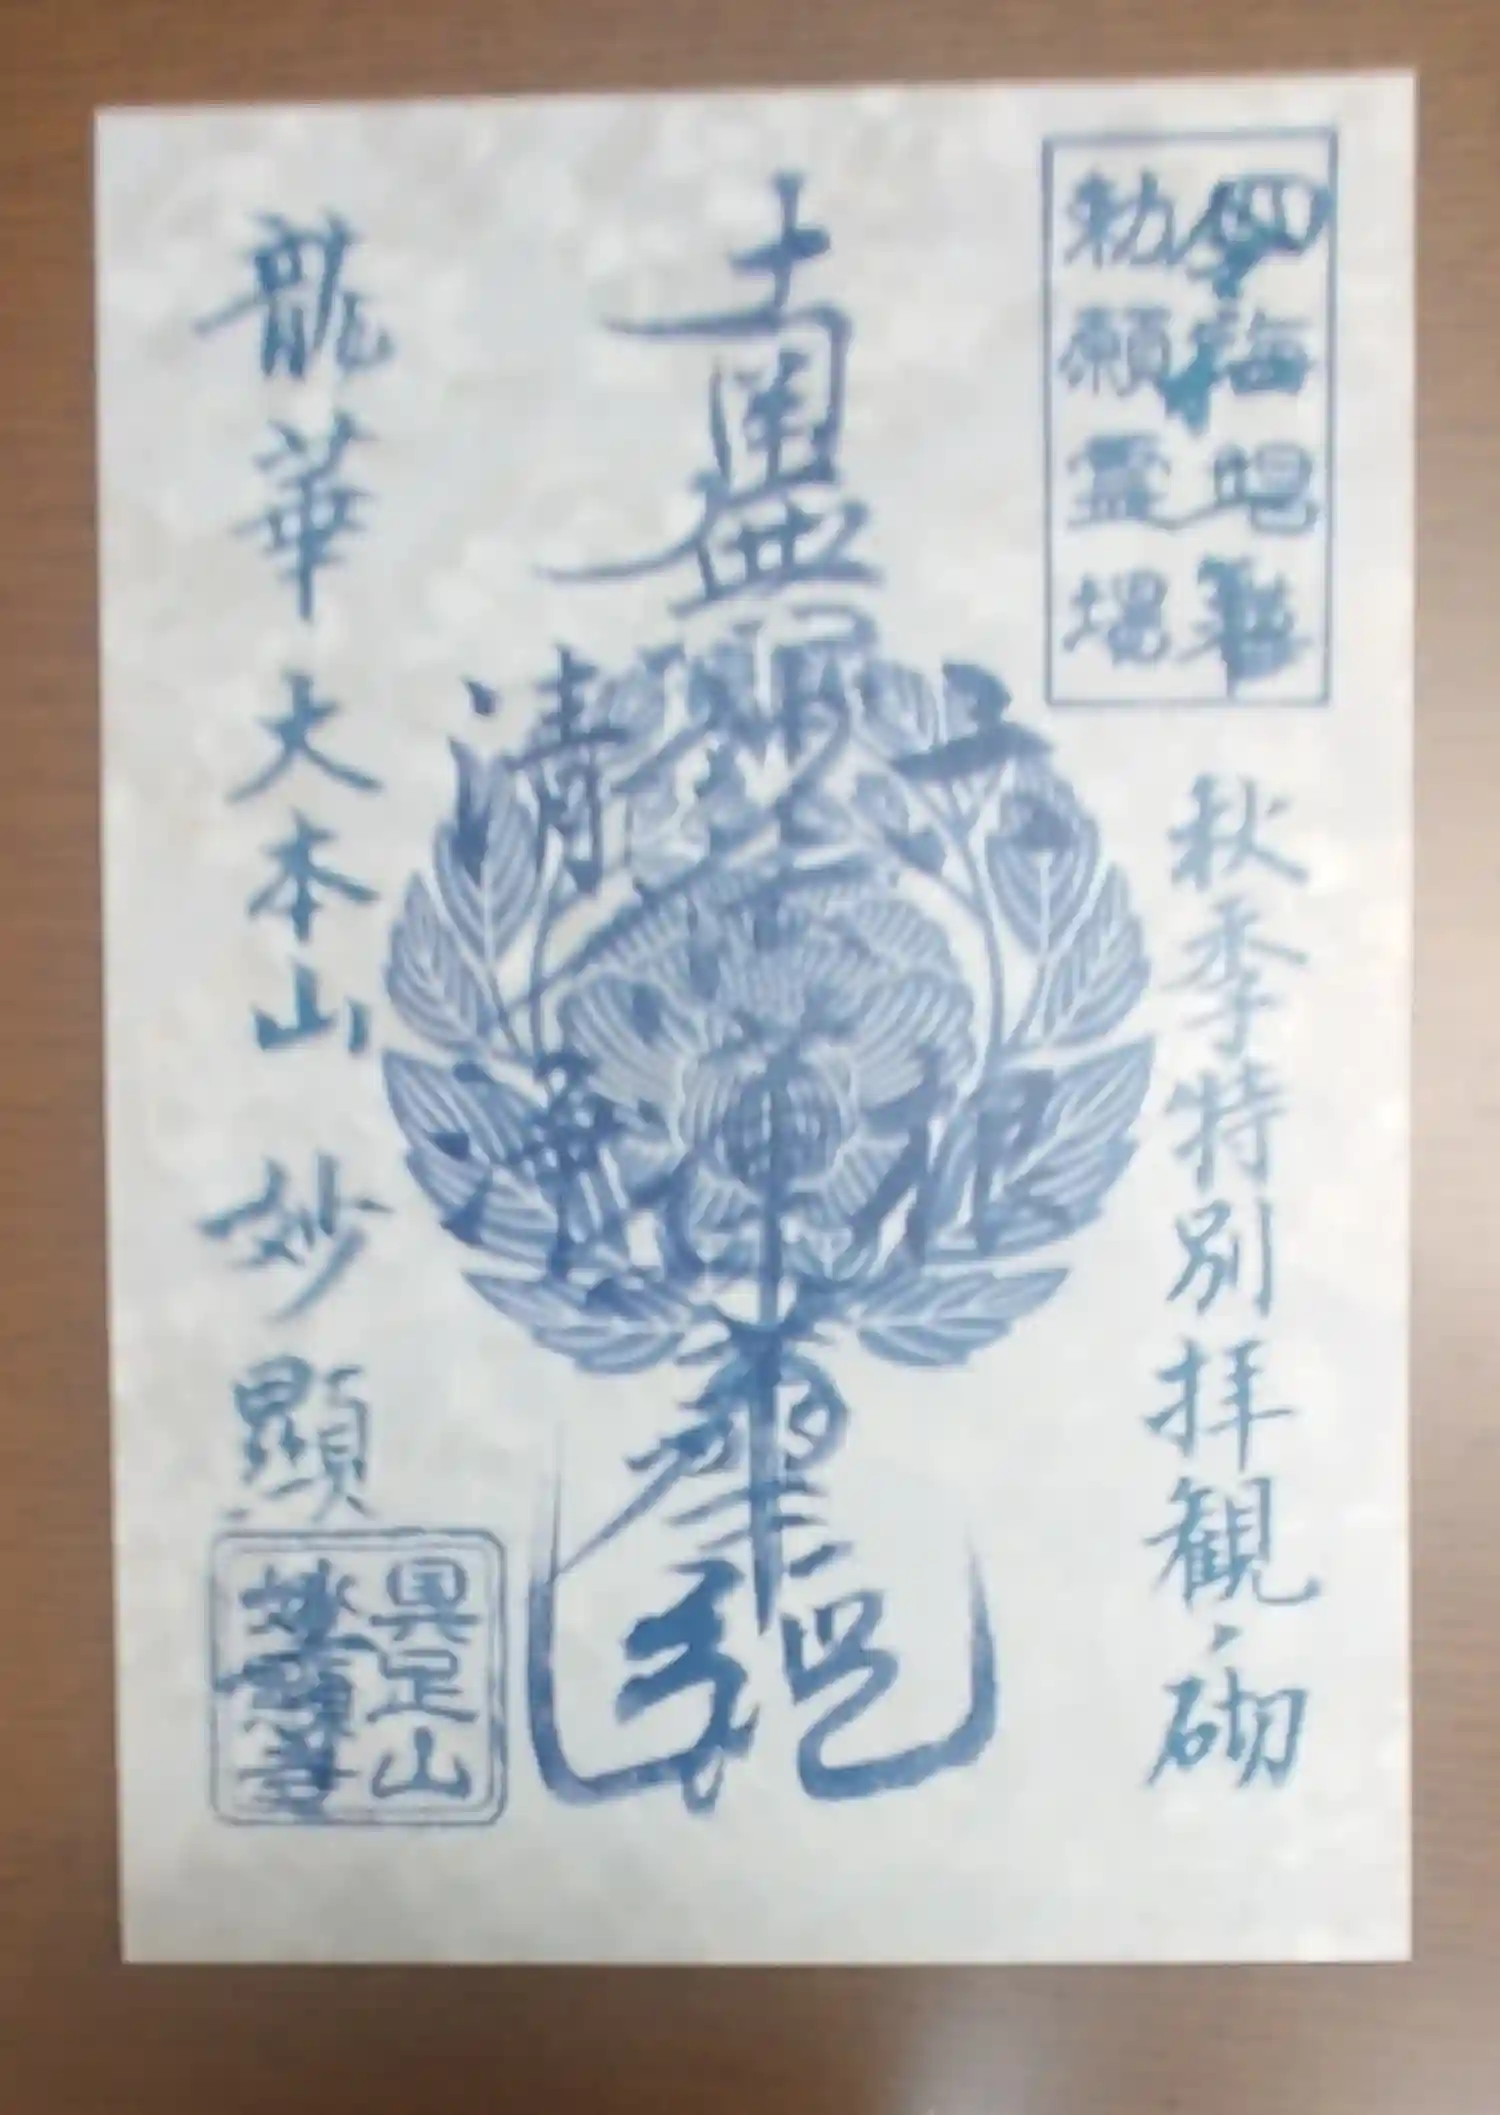 四海唱導
勅願霊場
秋季特別拝観ノ砌
六根
南無妙法蓮華経
清浄
龍華 大本山 妙顯寺
具足山
妙顯寺